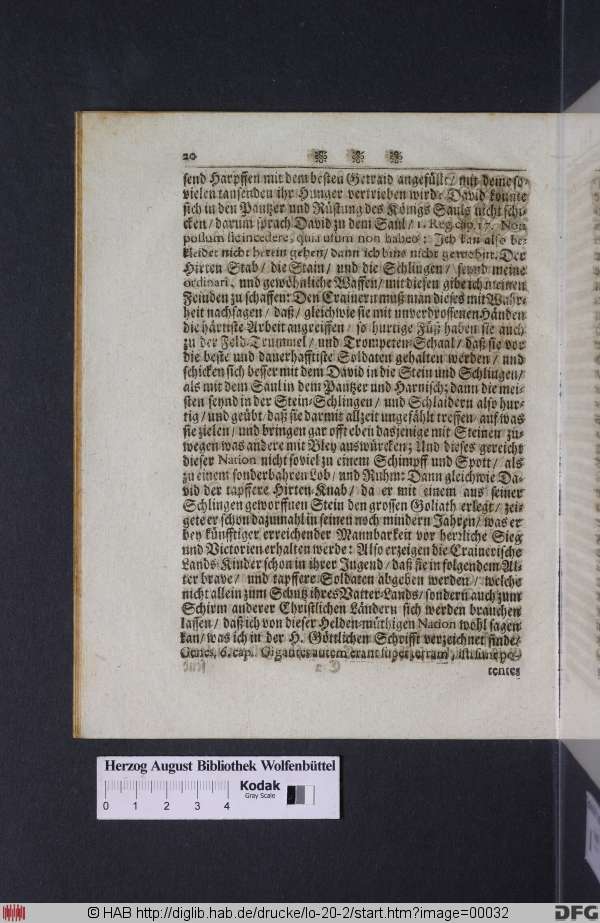 20
send Harpffen mit dem besten Getraid angefüllt / mit deme so
vielen tausenden ihr Hunger vertrieben wird. David konnte
sich in den Pantzer und Rüstung des Königs Sauls nicht schi-
cken / darum sprach David zu dem Saul / 1. Reg. cap. 17. Non
possum sic incedere, quia usum non habeo: Ich kan also be-
kleidet nicht herein gehen / dann ich bins nicht gewohnt. Der
Hirten Stab / die Stain / und die Schlingen / seynd meine
ordinari, und gewöhnliche Waffen / mit diesen gibe ich meinen
Feinden zu schaffen: Den Crainern muß man dieses mit Wahr-
heit nachsagen / daß / gleichwie sie mit unverdrossenen Händen
die härtiste Arbeit angreiffen / so hurtige Füß haben sie auch
zu der Feld-Trummel / und Trompeten-Schaal / daß sie vor
die beste und dauerhafftiste Soldaten gehalten werden / und
schicken sich besser mit dem David in die Stein und Schlingen /
als mit dem Saul in dem Pantzer und Harnisch: dann die mei-
sten seynd in der Stein-Schlingen / und Schlaidern also hur-
tig / und geübt / daß sie darmit allzeit ungefählt treffen / auf was
sie zielen / und bringen gar offt eben dasjenige mit Steinen zu-
wegen was andere mit Bley auswürcken: Und dieses gereicht
dieser Nation nicht so viel zu einem Schimpff und Spott / als
zu einem sonderbahren Lob / und Ruhm: Dann gleichwie Da-
vid der tapffere Hirten-Knab / da er mit einem aus seiner
Schlingen geworffnen Stein den grossen Goliath erlegt / zei-
gete er schon dazumahl in seinen noch mindern Jahren / was er
bey künfftiger erreichender Mannbarkeit vor herrliche Sieg
und Victorien erhalten werde: Also erzeigen die Crainerische
Lands-Kinder schon in ihrer Jugend / daß sie in folgendem Al-
ter brave / und tapffere Soldaten abgeben werden / welche
nicht allein zum Schutz ihres Vatter-Lands / sondern auch zum
Schirm anderer Christlichen Ländern sich werden brauchen
lassen / daß ich von dieser Helden-müthigen Nation wohl sagen
kan / was ich in der H. Göttlichen Schrifft verzeichnet finde /
Genes. 6. cap. Gigantes autem erant super terram, isti sunt po-
tentes
Herzog August Bibliothek Wolfenbüttel
Kodak
Gray Scale
0 1 2 3 4
© HAB http://diglib.hab.de/drucke/lo-20-2/start.htm?image=00032
DFG